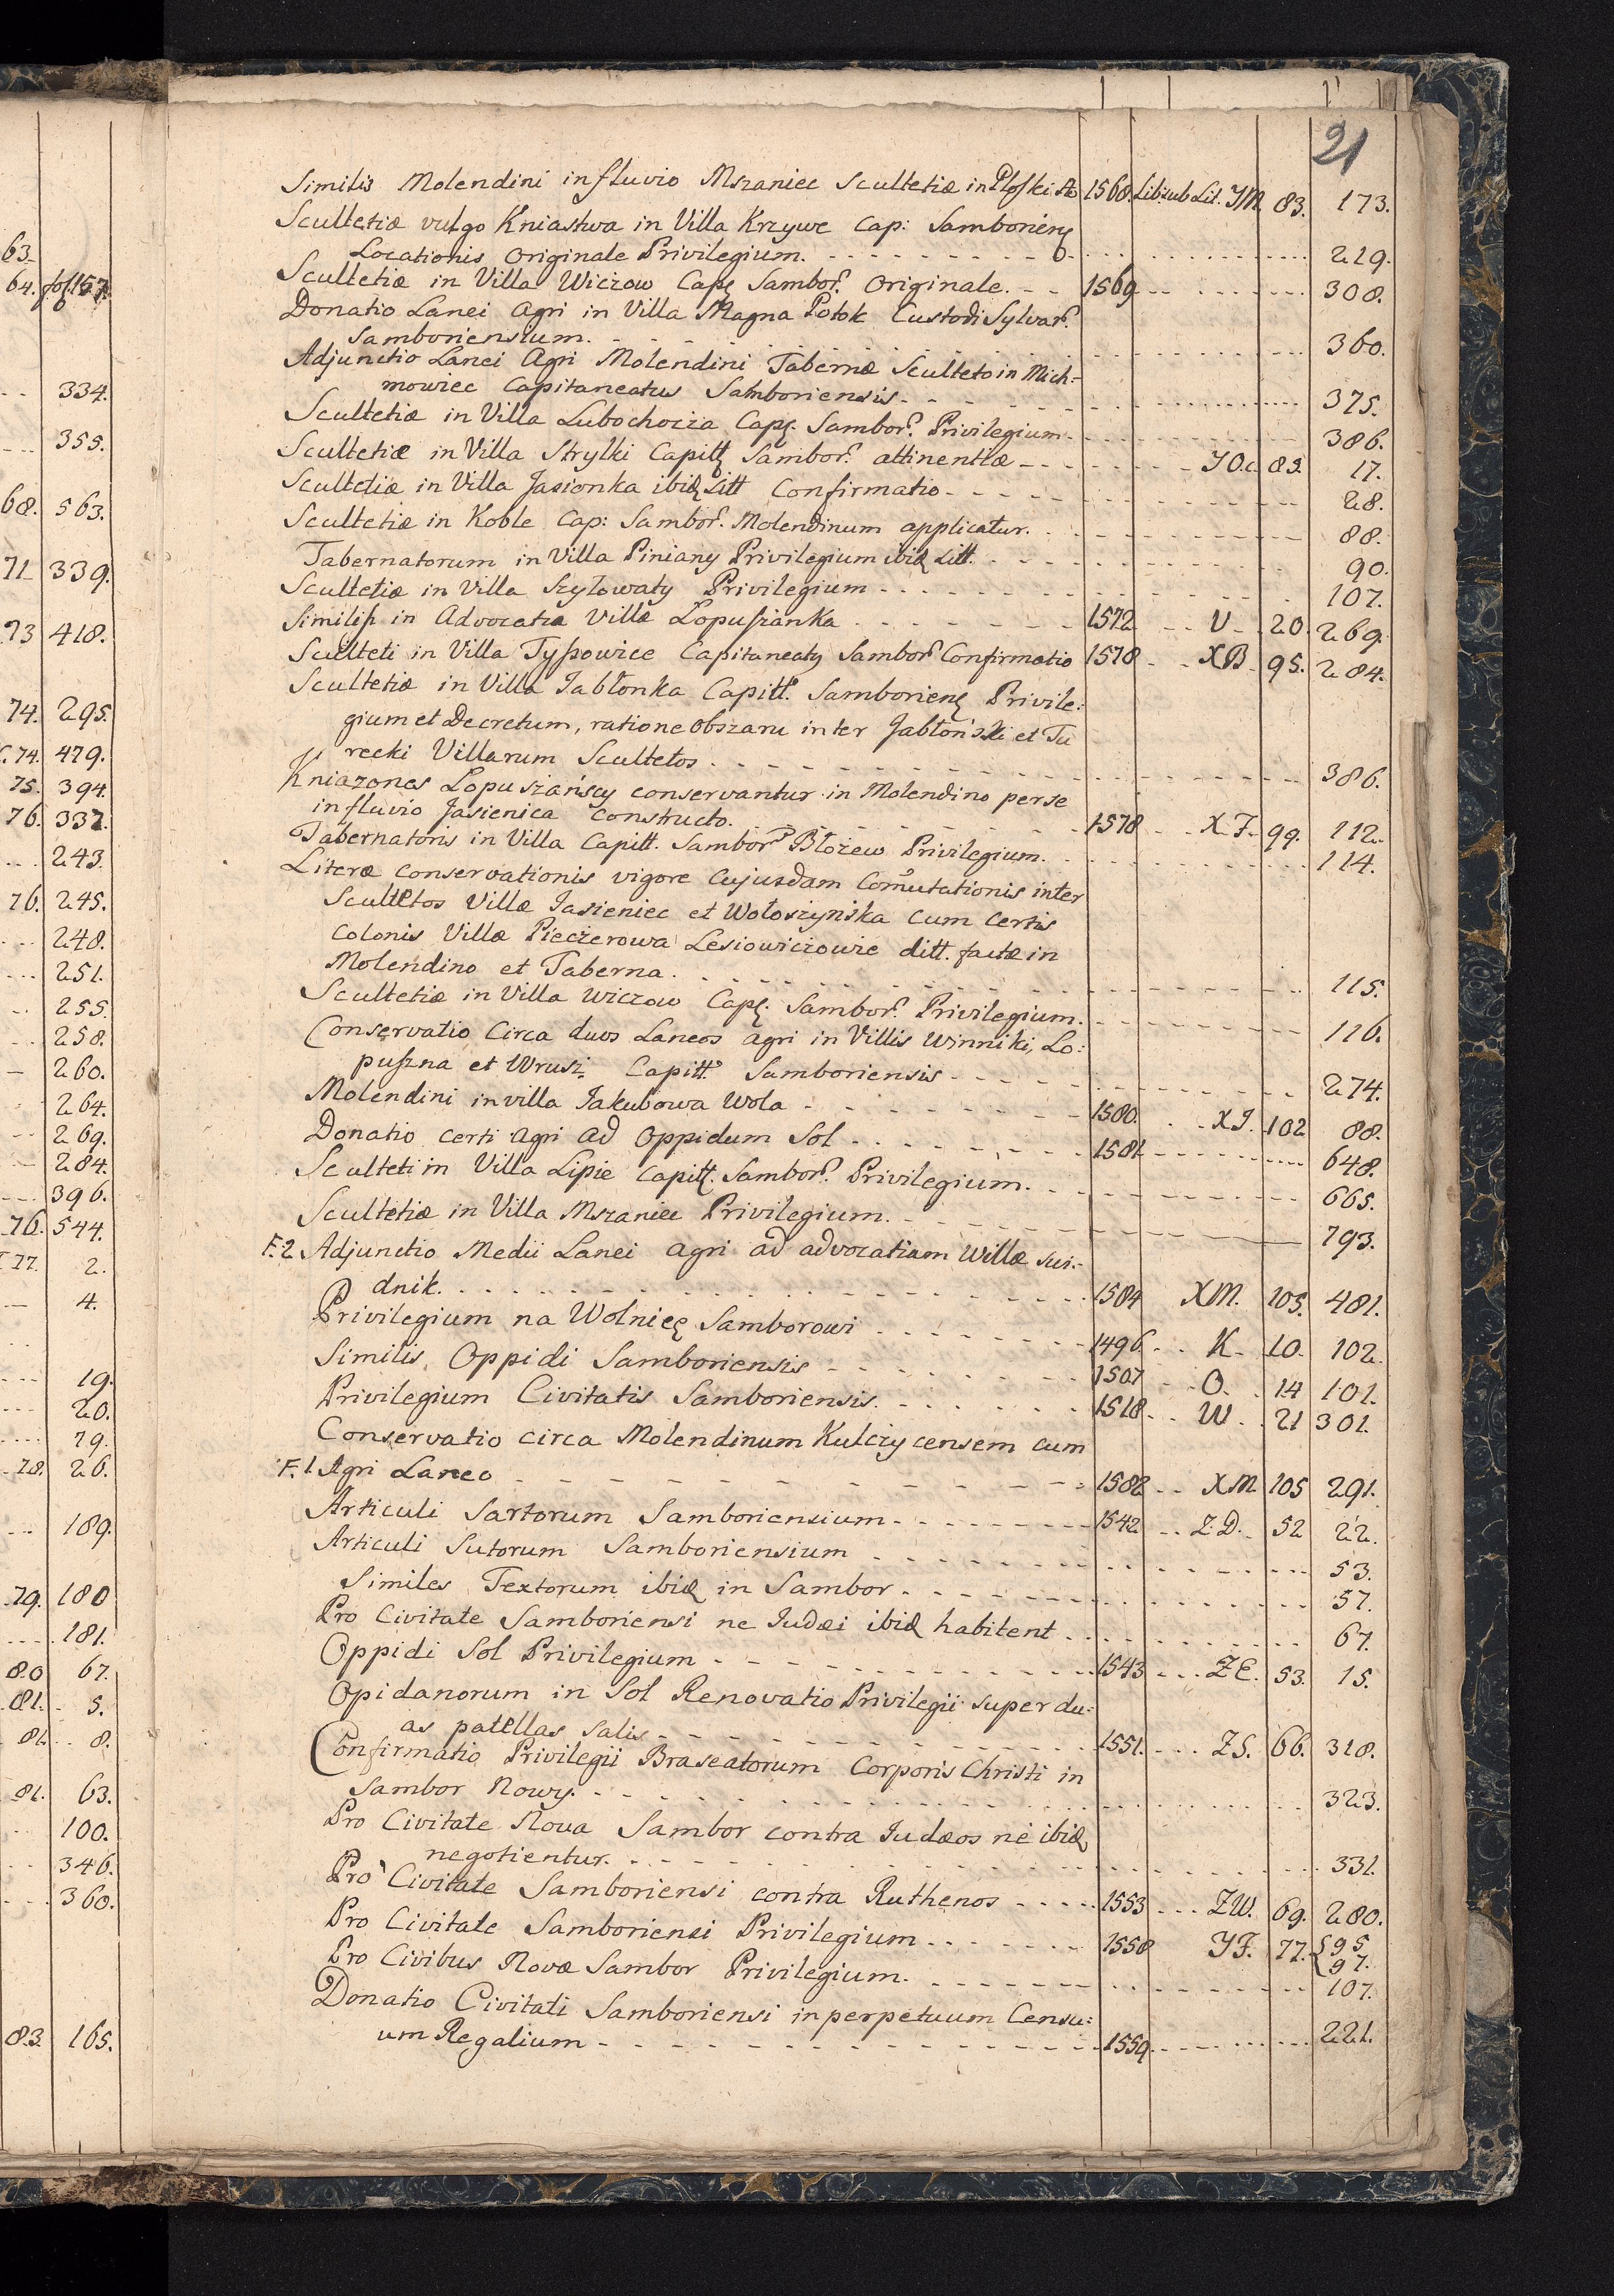 21
Similis Molendini in fluvio Mszaniec Scultetiæ in Ploski 1568. Lib: sub Lit. YM. 83. 173.
Scultetiæ vulgo Kniastwa in Villa Krzywe Cap: Samborień
Locationis Originale Privilegium. 219.
Scultetiæ in Villa Wiczow Cap: Sambor. Originale. 1569 308.
Donatio Lanei Agri in Villa Magna Potok Custodi Sylvar.
Samboriensium. 360.
Adjunctio Lanei Agri Molendini Tabernæ Sculteto in Mich:
nowiec Capitaneatus Samboriensis 375.
Scultetiæ in Villa Lubochocza Cap: Sambor. Privilegium 386.
Scultetiæ in Villa Strylki Capitt Sambor. attinentiæ YOc. 83. 17.
Scultetiæ in Villa Jasionka ibid Litt Confirmatio 28.
Scultetiæ in Koble Cap: Sambor. Molendinum applicatur. 88.
Tabernatorum in Villa Piniany Privilegium ibid Litt. 90.
Scultetiæ in Villa Szytowaty Privilegium 107.
Similis in Advocatia Villæ Lopuszanka 1572 V 20. 269.
Sculteti in Villa Tyszowice Capitaneatq Sambor Confirmatio 1578 XB 95. 284.
Scultetiæ in Villa Jabłonka Capitt. Samborieng Privile:
gium et Decretum, ratione obszaru inter Jabłoński et Tu
recki Villarum Scultetos 386.
Kniazones Lopuszańscy conservantur in Molendino per se
in fluvio Jasienica constructo. 1578 X.F. 99. 112.
Tabernatoris in Villa Capitt. Sambor Błożew Privilegium. 114.
Literæ conservationis vigore cujusdam Comutationis inter
Scultetos Villæ Jasieniec et Wołoszynska cum certis
Colonis Villæ Pieczerowa Lesiowiczowie ditt. factæ in
Molendino et Taberna. 115.
Scultetiæ in Villa Wiczow Cap: Sambor. Privilegium. 116.
Conservatio Circa duos Laneos Agri in Villis Winniki, Lo:
puszna et Wrusi. Capitt. Samboriensis 274.
Molendini in villa Jakubowa Wola 1580. XJ. 102 88.
Donatio certi Agri ad Oppidum Sol 1581 648.
Sculteti in Villa Lipie Capitt. Sambor. Privilegium. 665.
Scultetiæ in Villa Mszaniec Privilegium. 793.
F.2 Adjunctio Medii Lanei Agri ad advocatiam Willæ Sui:
dnik. 1584 XM. 105. 481.
Privilegium na Wolnicę Samborowi 1496. K 10. 102.
Similis Oppidi Samboriensis 1507 O. 14 101.
Privilegium Civitatis Samboriensis. 1518 W 21 301.
Conservatio circa Molendinum Kulczycensem cum
F.1 Agri Laneo 1582 XM 105 291.
Articuli Sartorum Samboriensium 1542 Z.D. 52 22.
Articuli Sutorum Samboriensium 53.
Similes Textorum ibid in Sambor. 57.
Pro Civitate Samboriensi ne Judæi ibid habitent 67.
Oppidi Sol Privilegium 1543 ZE. 53. 15.
Opidanorum in Sol Renovatio Privilegii super du:
as patellas Salis 1551. ZS. 66. 318.
Confirmatio Privilegii Braseatorum Corporis Christi in
Sambor Nowy. 323.
Pro Civitate Nova Sambor contra Judæos ne ibid
negotientur. 331.
Pro Civitate Samboriensi contra Ruthenos 1553 ZW. 69. 280.
Pro Civitate Samboriensi Privilegium 1558 YF. 77. 95
97.
Pro Civibus Novæ Sambor Privilegium. 107.
Donatio Civitati Samboriensi in perpetuum Censu:
um Regalium 1559 221.
63
64. fol 157.
334.
355.
68. 563.
71 339.
73 418.
74. 295.
74. 479.
75. 394.
76. 337.
243.
76. 245.
248.
251.
255.
258.
260.
264.
269.
284.
396.
76. 544.
77. 2.
4.
19.
20.
79.
78. 26.
189.
79. 180
181.
80 67.
81. 5.
81. 8.
81. 63.
100.
346.
360.
83. 165.